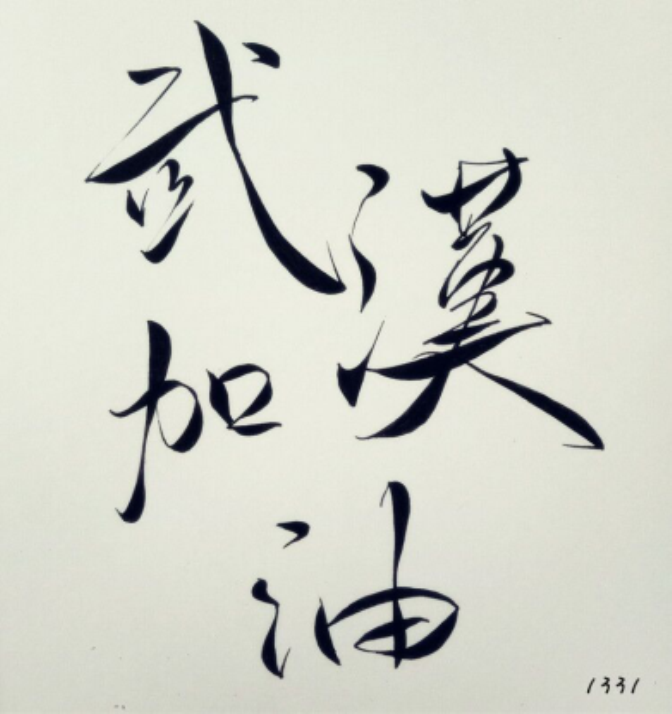 武漢
加
油
1331